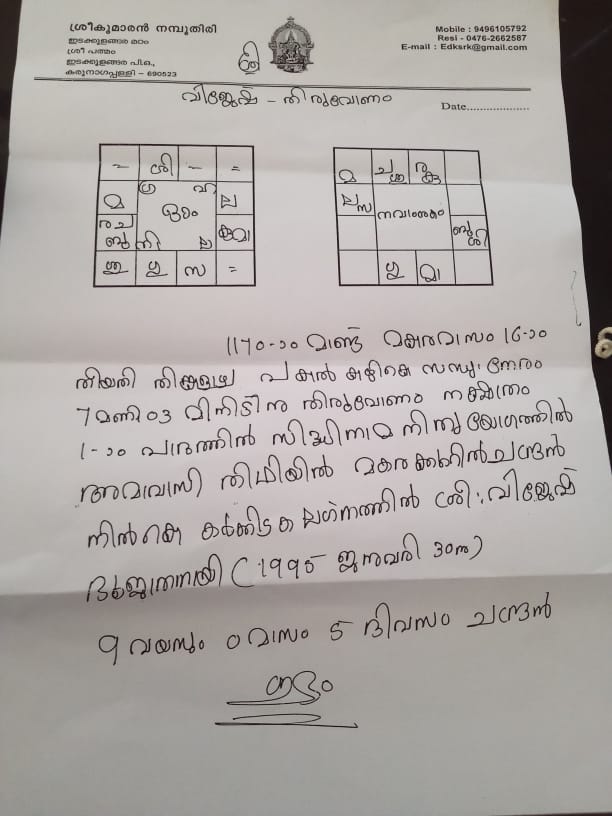 ശ്രീകുമാരൻ നമ്പൂതിരി
ഇടക്കുളങ്ങര മഠം
ശ്രീ പത്മം
ഇടക്കുളങ്ങര പി.ഒ.,
കരുനാഗപ്പള്ളി – 690523
ശ്രീ
Mobile : 9496105792
Resi - 0476-2662587
E-mail : Edksrk@gmail.com
വിജേഷ് - തിരുവോണം
Date...................
– ശി – =
മ
ല
രച
ബു
കുമാ
ശു ഗു സ =
മ
ല സ
നവാംശകം
ബു
ശി
ഗു മാ
1170-ാം മാണ്ട് മകരമാസം 16-ാം
തീയതി തിങ്കളാഴ്ച പകൽ കഴിഞ്ഞ് സന്ധ്യ: നേരം
7 മണി 03 മിനിട്ടിനു തിരുവോണം നക്ഷത്രം
1-ാം പാദത്തിൽ സിദ്ധിനാമ നിത്യയോഗത്തിൽ
അമാവാസി തിഥിയിൽ മകരക്കൂറിൽ ചന്ദ്രൻ
നിൽക്കെ കർക്കിടക ലഗ്നത്തിൽ ശ്രീ: വിജേഷ്
(1995 ജനുവരി 30ന്)
9 വയസും 0 മാസം 5 ദിവസം ചന്ദ്രൻ
ശുഭം